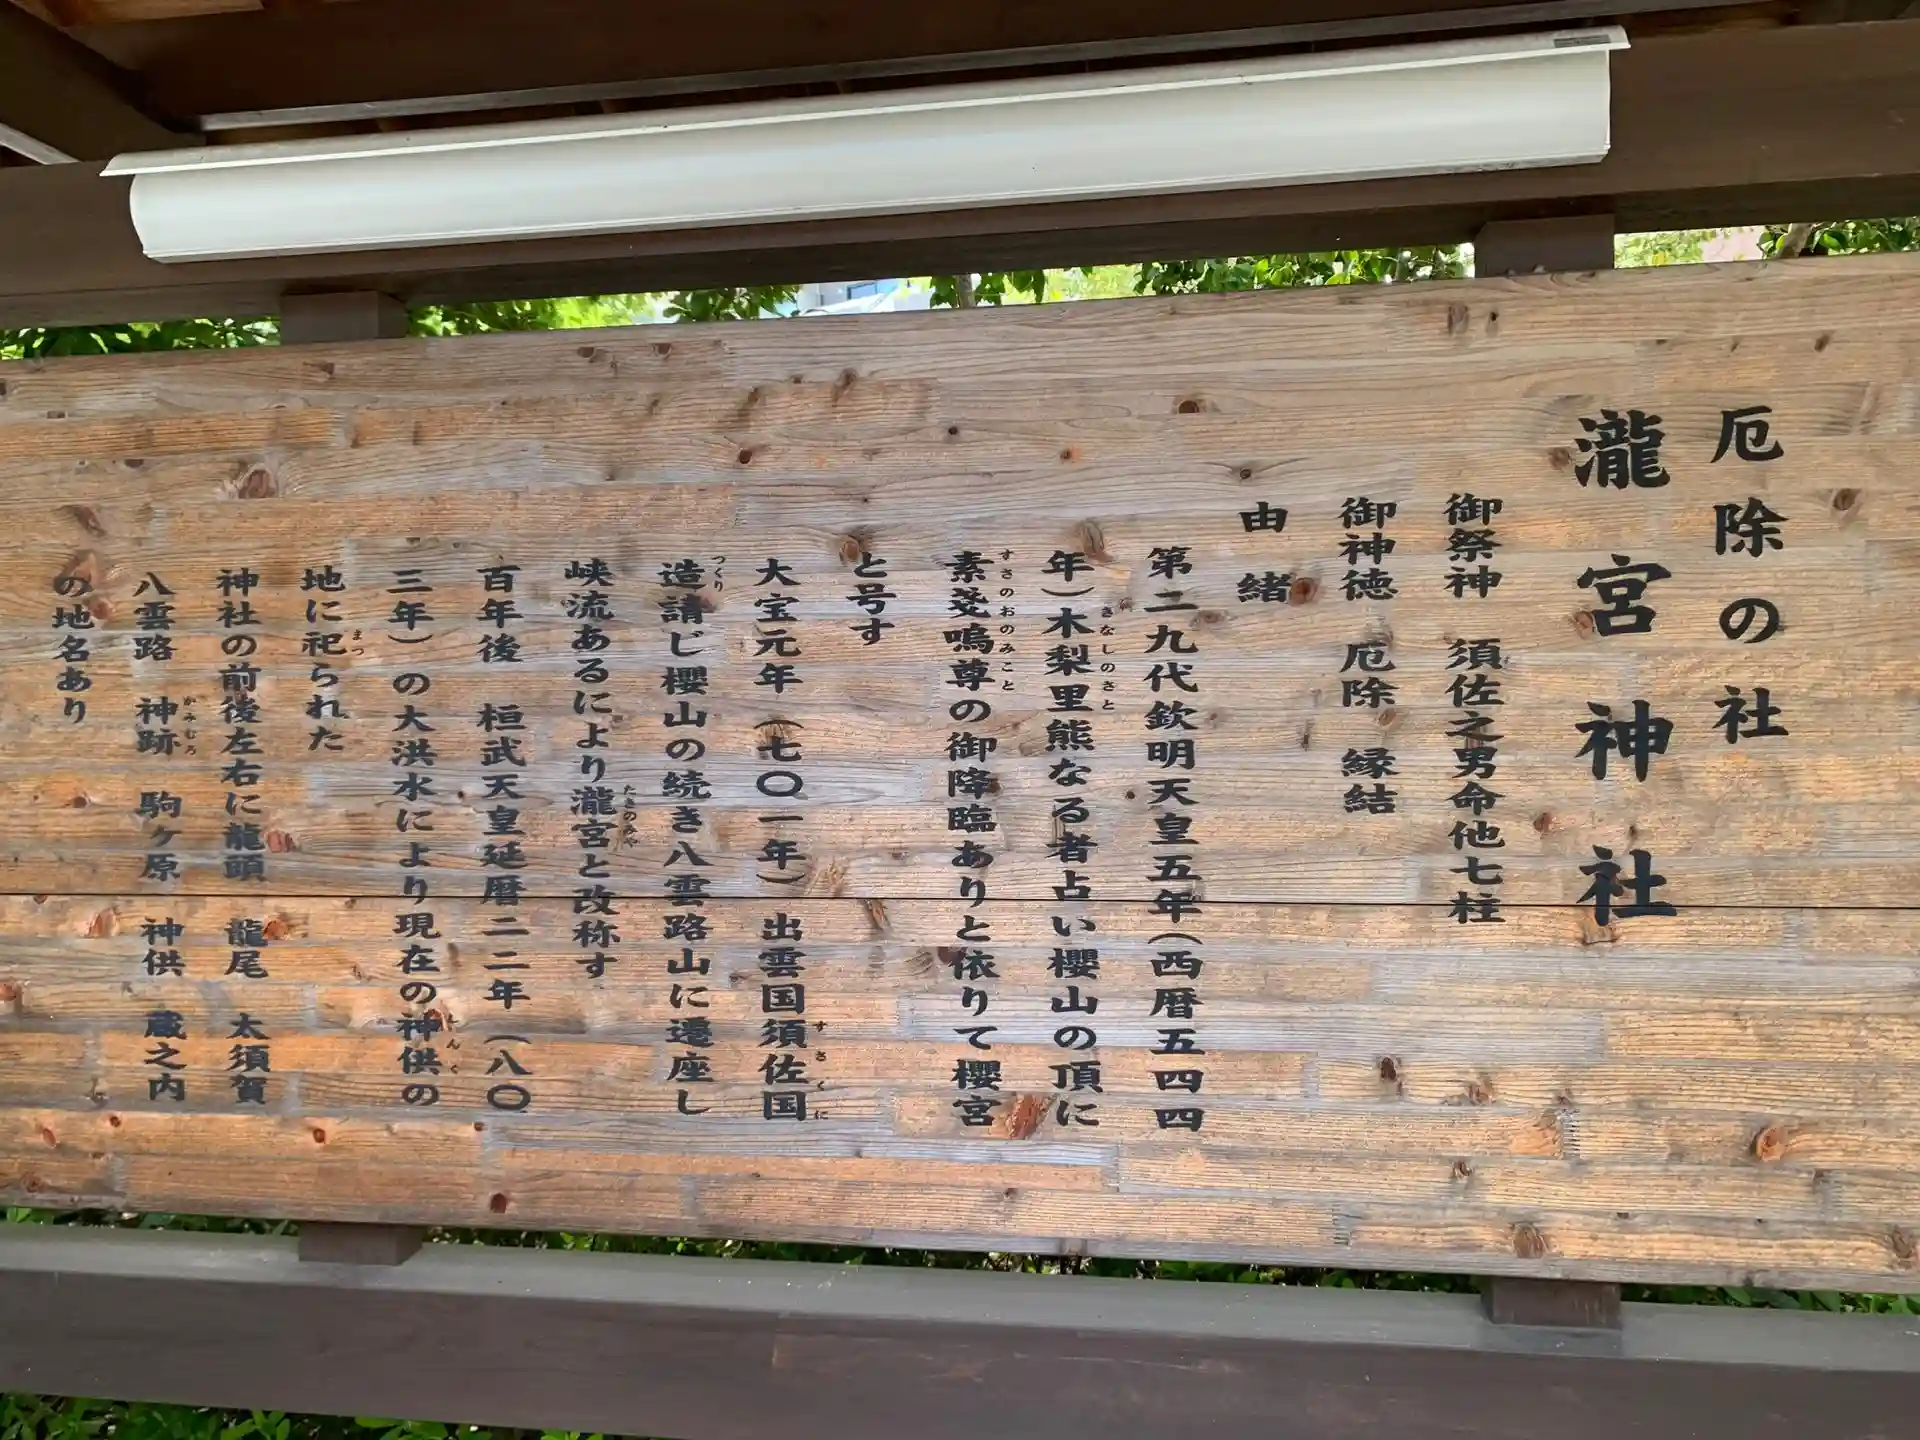 厄除の社
瀧宮神社
御祭神　須佐之男命他七柱
御神徳　厄除　縁結
由緒
第二九代欽明天皇五年（西暦五四四
年）木梨里熊なる者占い櫻山の頂に
きなしのさと
素戔嗚尊の御降臨ありと依りて櫻宮
すさのおのみこと
と号す
大宝元年（七〇一年）出雲国須佐国
すさくに
造請じ櫻山の続き八雲路山に遷座し
つくり
峡流あるにより瀧宮と改称す
たきのみや
百年後　桓武天皇延暦二二年（八〇
三年）の大洪水により現在の神供の
じんく
地に祀られた
まつ
神社の前後左右に龍頭　龍尾　太須賀
八雲路　神跡　駒ヶ原　神供　蔵之内
かみむろ
の地名あり